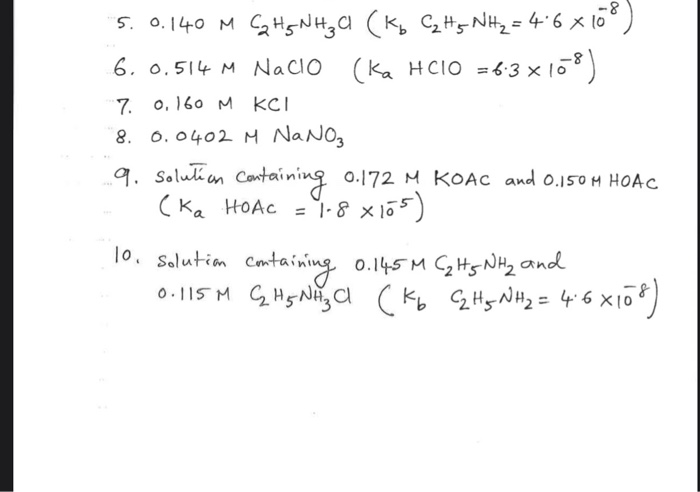 5. 0.140 M C₂H₅NH₃Cl (K_b C₂H₅NH₂ = 4.6 × 10⁻⁸)
6. 0.514 M NaClO (Ka HClO = 6.3 × 10⁻⁸)
7. 0.160 M KCl
8. 0.0402 M NaNO₃
9. Solution containing 0.172 M KOAC and 0.150 M HOAC
(Ka HOAC = 1.8 × 10⁻⁵)
10. Solution containing 0.145 M C₂H₅NH₂ and
0.115 M C₂H₅NH₃Cl (K_b C₂H₅NH₂ = 4.6 × 10⁻⁸)